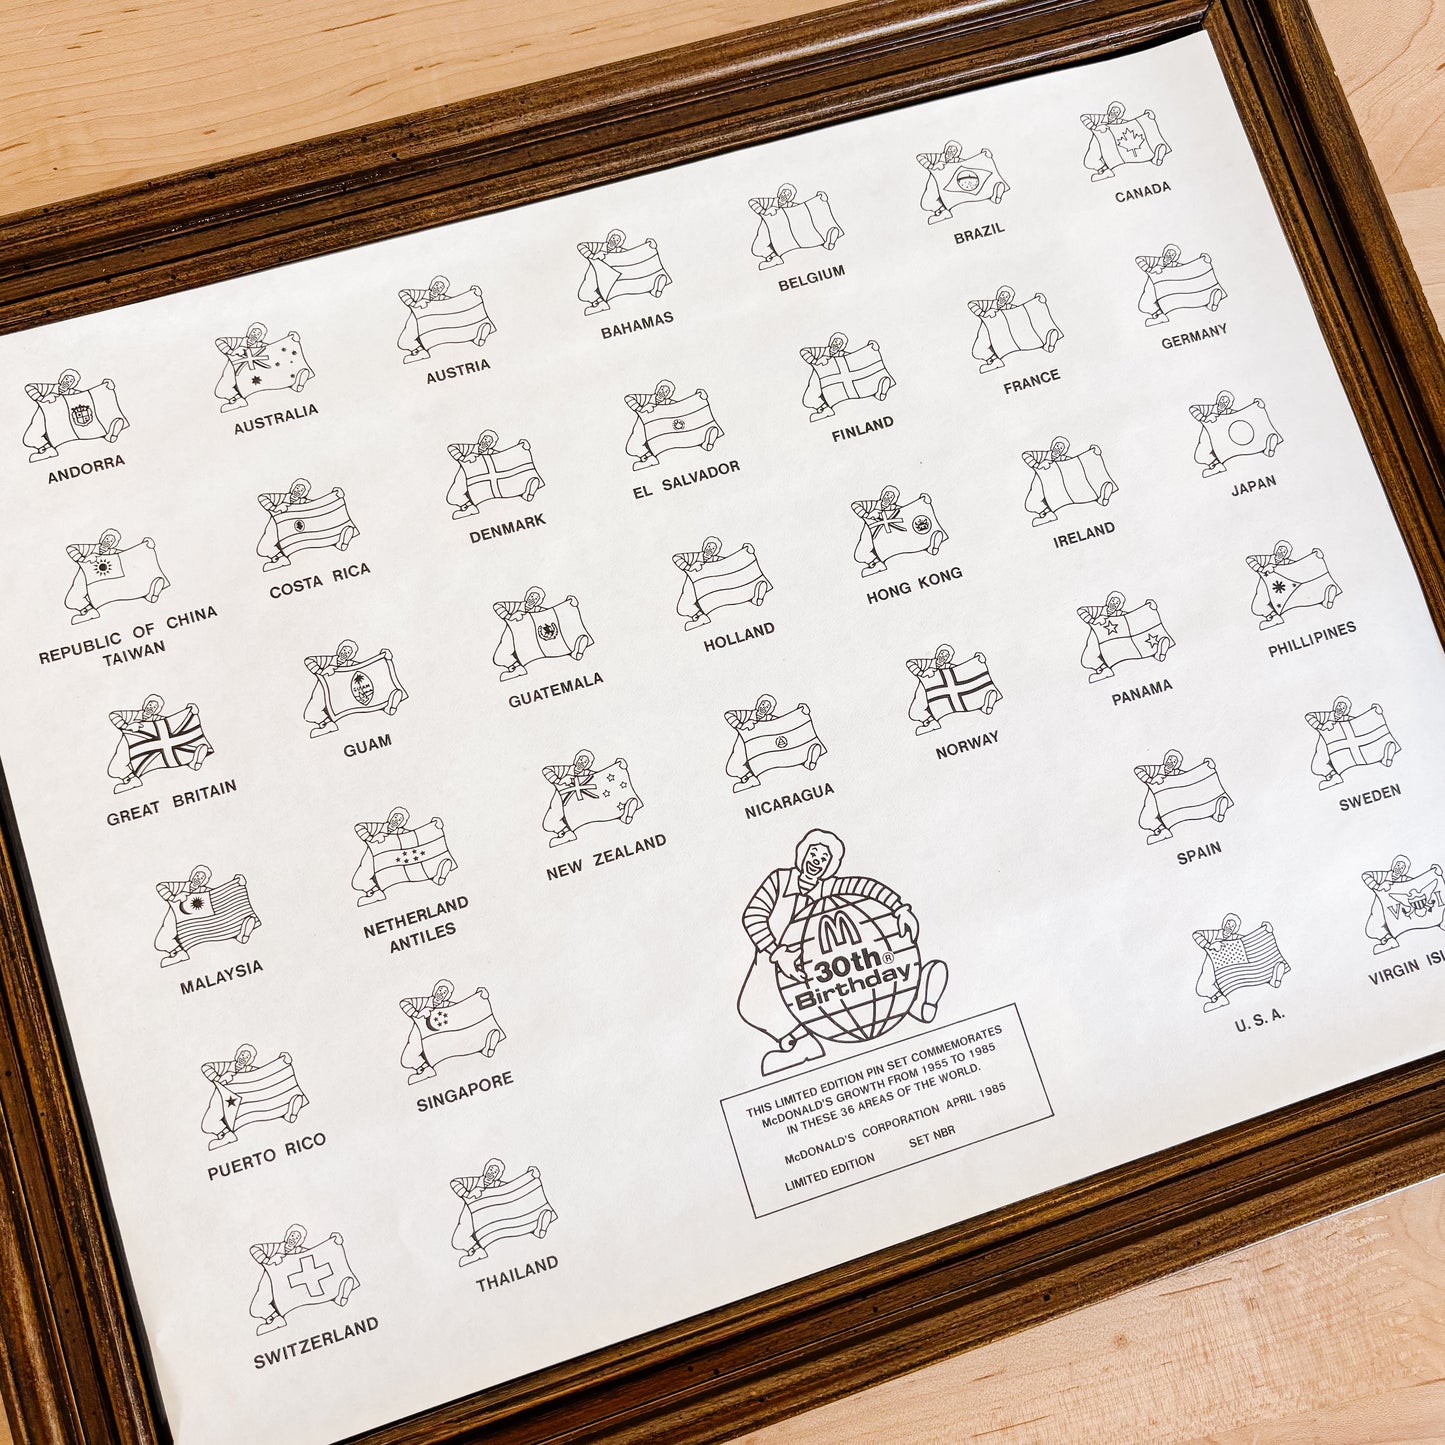 ANDORRA
AUSTRALIA
AUSTRIA
BAHAMAS
BELGIUM
BRAZIL
CANADA
REPUBLIC OF CHINA
TAIWAN
COSTA RICA
DENMARK
EL SALVADOR
FINLAND
FRANCE
GERMANY
GREAT BRITAIN
GUAM
GUAM
GUATEMALA
HOLLAND
HONG KONG
IRELAND
JAPAN
MALAYSIA
NETHERLAND
ANTILES
NEW ZEALAND
NICARAGUA
NORWAY
PANAMA
PHILLIPINES
PUERTO RICO
SINGAPORE
SPAIN
SWEDEN
SWITZERLAND
THAILAND
U.S.A.
V I
VIRGIN
M
30th®
Birthday
THIS LIMITED EDITION PIN SET COMMEMORATES
McDONALD'S GROWTH FROM 1955 TO 1985
IN THESE 36 AREAS OF THE WORLD.
McDONALD'S CORPORATION APRIL 1985
LIMITED EDITION SET NBR